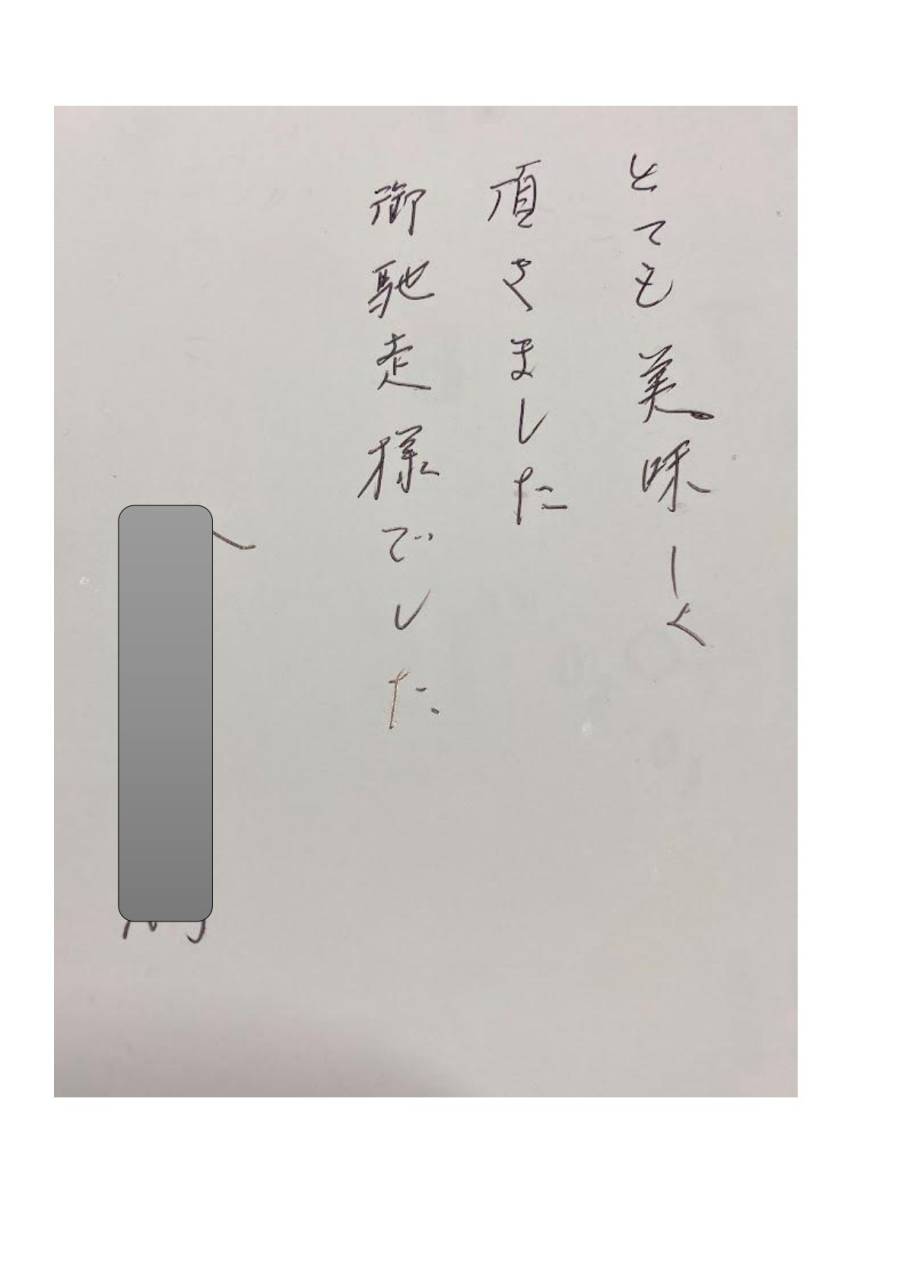 とても美味しく
頂きました
御馳走様でした